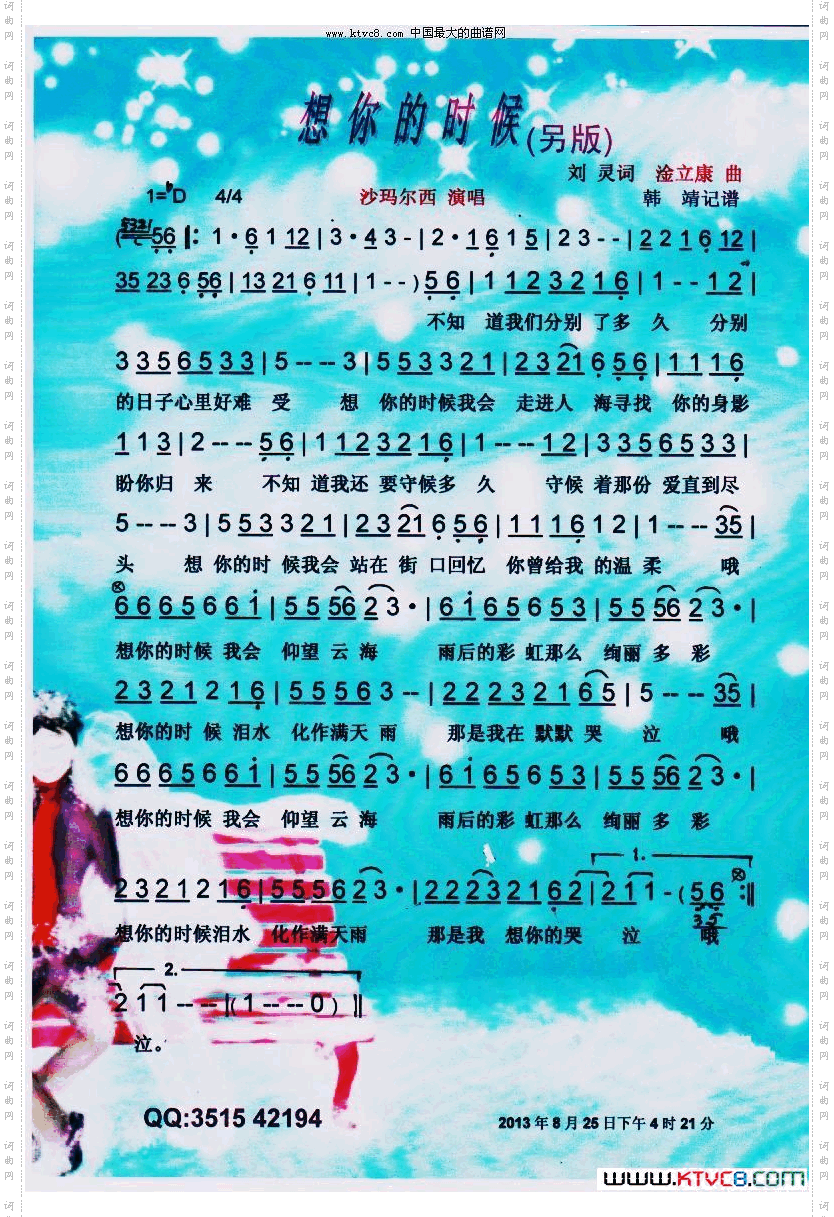 www.ktvc8.com 中国最大的曲谱网
想你的时候(另版)
刘 灵词 淦立康 曲
1=♭D 4/4 沙玛尔西 演唱 韩 靖记谱
56 ‖: 1·6 1 12 | 3·4 3- | 2·1 6 1 5 | 2 3 - - | 2 2 1 6 12 |
35 23 6 56 | 13 21 6 11 | 1 - - ) 5 6 | 1 1 2 3 2 1 6 | 1 - - 1 2 |
不知 道我们分别 了多 久 分别
3 3 5 6 5 3 3 | 5 -- -- 3 | 5 5 3 3 2 1 | 2 3 21 6 5 6 | 1 1 1 6
的日子心里好难 受 想 你的时候我会 走进人 海寻找 你的身影
1 1 3 | 2 -- -- 5 6 | 1 1 2 3 2 1 6 | 1 -- -- 1 2 | 3 3 5 6 5 3 3
盼你归 来 不知 道我还 要守候多 久 守候 着那份 爱直到尽
5 -- -- 3 | 5 5 3 3 2 1 | 2 3 21 6 5 6 | 1 1 1 6 1 2 | 1 -- -- 35 |
头 想 你的时 候我会 站在 街 口回忆 你曾给我 的温 柔 哦
6 6 6 5 6 6 1 | 5 5 56 2 3 · | 6 1 6 5 6 5 3 | 5 5 56 2 3 · |
想你的时候 我会 仰望 云 海 雨后的彩 虹那么 绚丽 多 彩
2 3 2 1 2 1 6 | 5 5 5 6 3 -- | 2 2 2 3 2 1 6 5 | 5 -- -- 35 |
想你的时 候 泪水 化作满天 雨 那是我在 默默 哭 泣 哦
6 6 6 5 6 6 1 | 5 5 56 2 3 · | 6 1 6 5 6 5 3 | 5 5 56 2 3 · |
想你的时候 我会 仰望 云 海 雨后的彩 虹那么 绚丽 多 彩
1.
2 3 2 1 2 1 6 | 5 5 5 6 2 3 · | 2 2 2 3 2 1 6 2 | 2 1 1 - ( 5 6 :‖
3 5
想你的时候泪水 化作满天雨 那是我 想你的哭 泣 哦
2.
2 1 1 -- -- |( 1 -- -- 0 ) ‖
泣。
QQ:3515 42194
2013 年 8 月 25 日下午 4 时 21 分
www.KTVC8.com